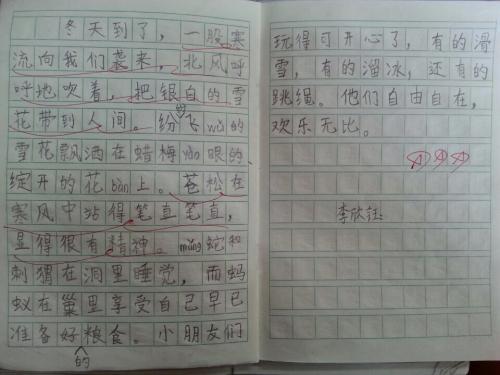 冬天到了，一股寒
流向我们袭来，北风呼
呼地吹着，把银白的雪
花带到人间。纷飞wǔ的
雪花飘洒在蜡梅yào眼的、
绽开的花bàn上。苍松在
寒风中站得笔直笔直，
显得很有精神。mǎng蛇和
刺猬在洞里睡觉，而蚂
蚁在巢里享受自己早已
准备好粮食。小朋友们
的
玩得可开心了，有的滑
雪，有的溜冰，还有的
跳绳。他们自由自在，
欢乐无比。
李欣钰